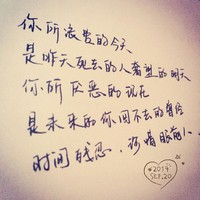 你所浪费的今天
是昨天死去的人奢望的明天
你所厌恶的现在
是未来的你回不去的曾经
时间残忍. 珍惜眼前人.
2014
Sep.20